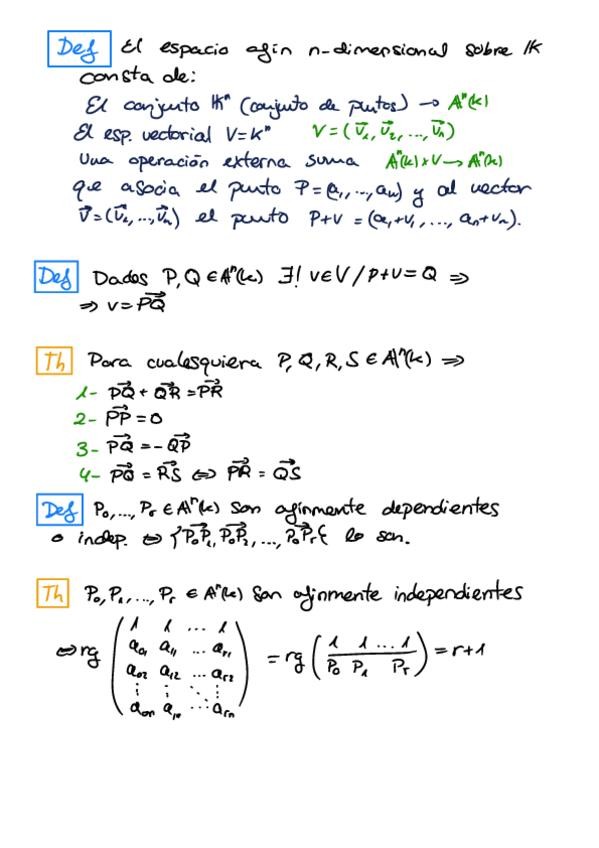 Def El espacio afín n-dimensional sobre K
consta de:
El conjunto Kⁿ (conjunto de puntos) → Aⁿ(k)
El esp. vectorial V=Kⁿ V=(v⃗₁, v⃗₂, ..., v⃗ₙ)
Una operación externa suma Aⁿ(k)×V→Aⁿ(k)
que asocia el punto P=(a₁,...,aₙ) y al vector
v⃗=(v⃗₁,...,v⃗ₙ) el punto P+v =(a₁+v₁,..., aₙ+vₙ).
Def Dados P,Q∈Aⁿ(k) ∃! v∈V/p+v=Q ⇒
⇒ v=PQ⃗
Th Para cualesquiera P,Q,R,S∈Aⁿ(k) ⇒
1- PQ⃗ + QR⃗ = PR⃗
2- PP⃗ = 0
3- PQ⃗ = -QP⃗
4- PQ⃗ = RS⃗ ⇔ PR⃗ = QS⃗
Def P₀,...,Pᵣ∈Aⁿ(k) son afínmente dependientes
o indep. ⇔ {P₀P₁⃗, P₀P₂⃗, ..., P₀Pᵣ⃗} lo son.
Th P₀,P₁,...,Pᵣ ∈ Aⁿ(k) son afínmente independientes
1 1 ... 1
⇔ rg a₀₁ a₁₁ ... aᵣ₁ = rg (1 1 ... 1 / P₀ P₁ Pᵣ) = r+1
a₀₂ a₁₂ ... aᵣ₂
⋮ ⋮ ⋱ ⋮
a₀ₙ a₁ₙ ... aᵣₙ